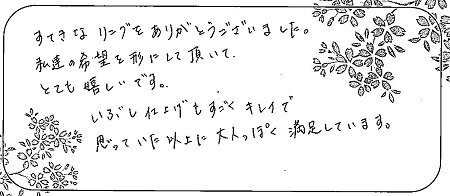 すてきな リングを ありがとうございました。
私達の希望を形にして頂いて、
とても 嬉しいです。
いぶし仕上げもすごく キレイで
思っていた以上に 大人っぽく 満足しています。